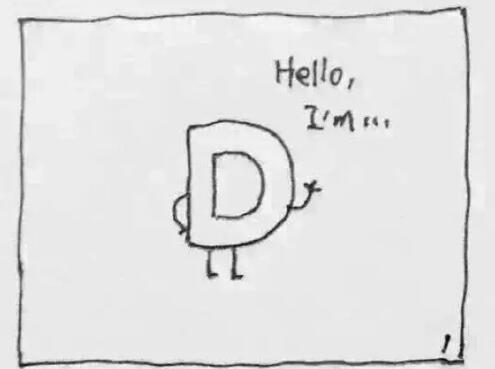 Hello,
I'm...
D
1